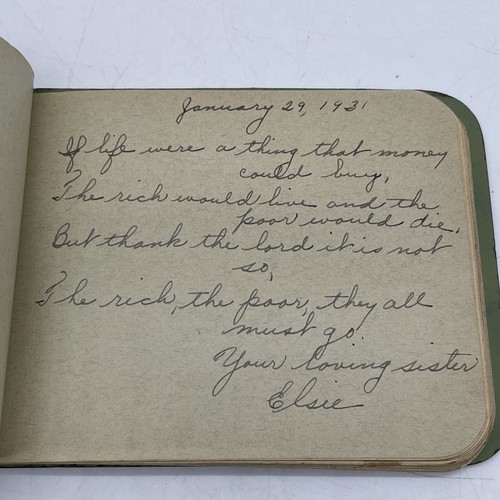 January 29, 1931
If life were a thing that money
could buy,
The rich would live and the
poor would die.
But thank the lord it is not
so,
The rich, the poor, they all
must go.
Your loving sister
Elsie